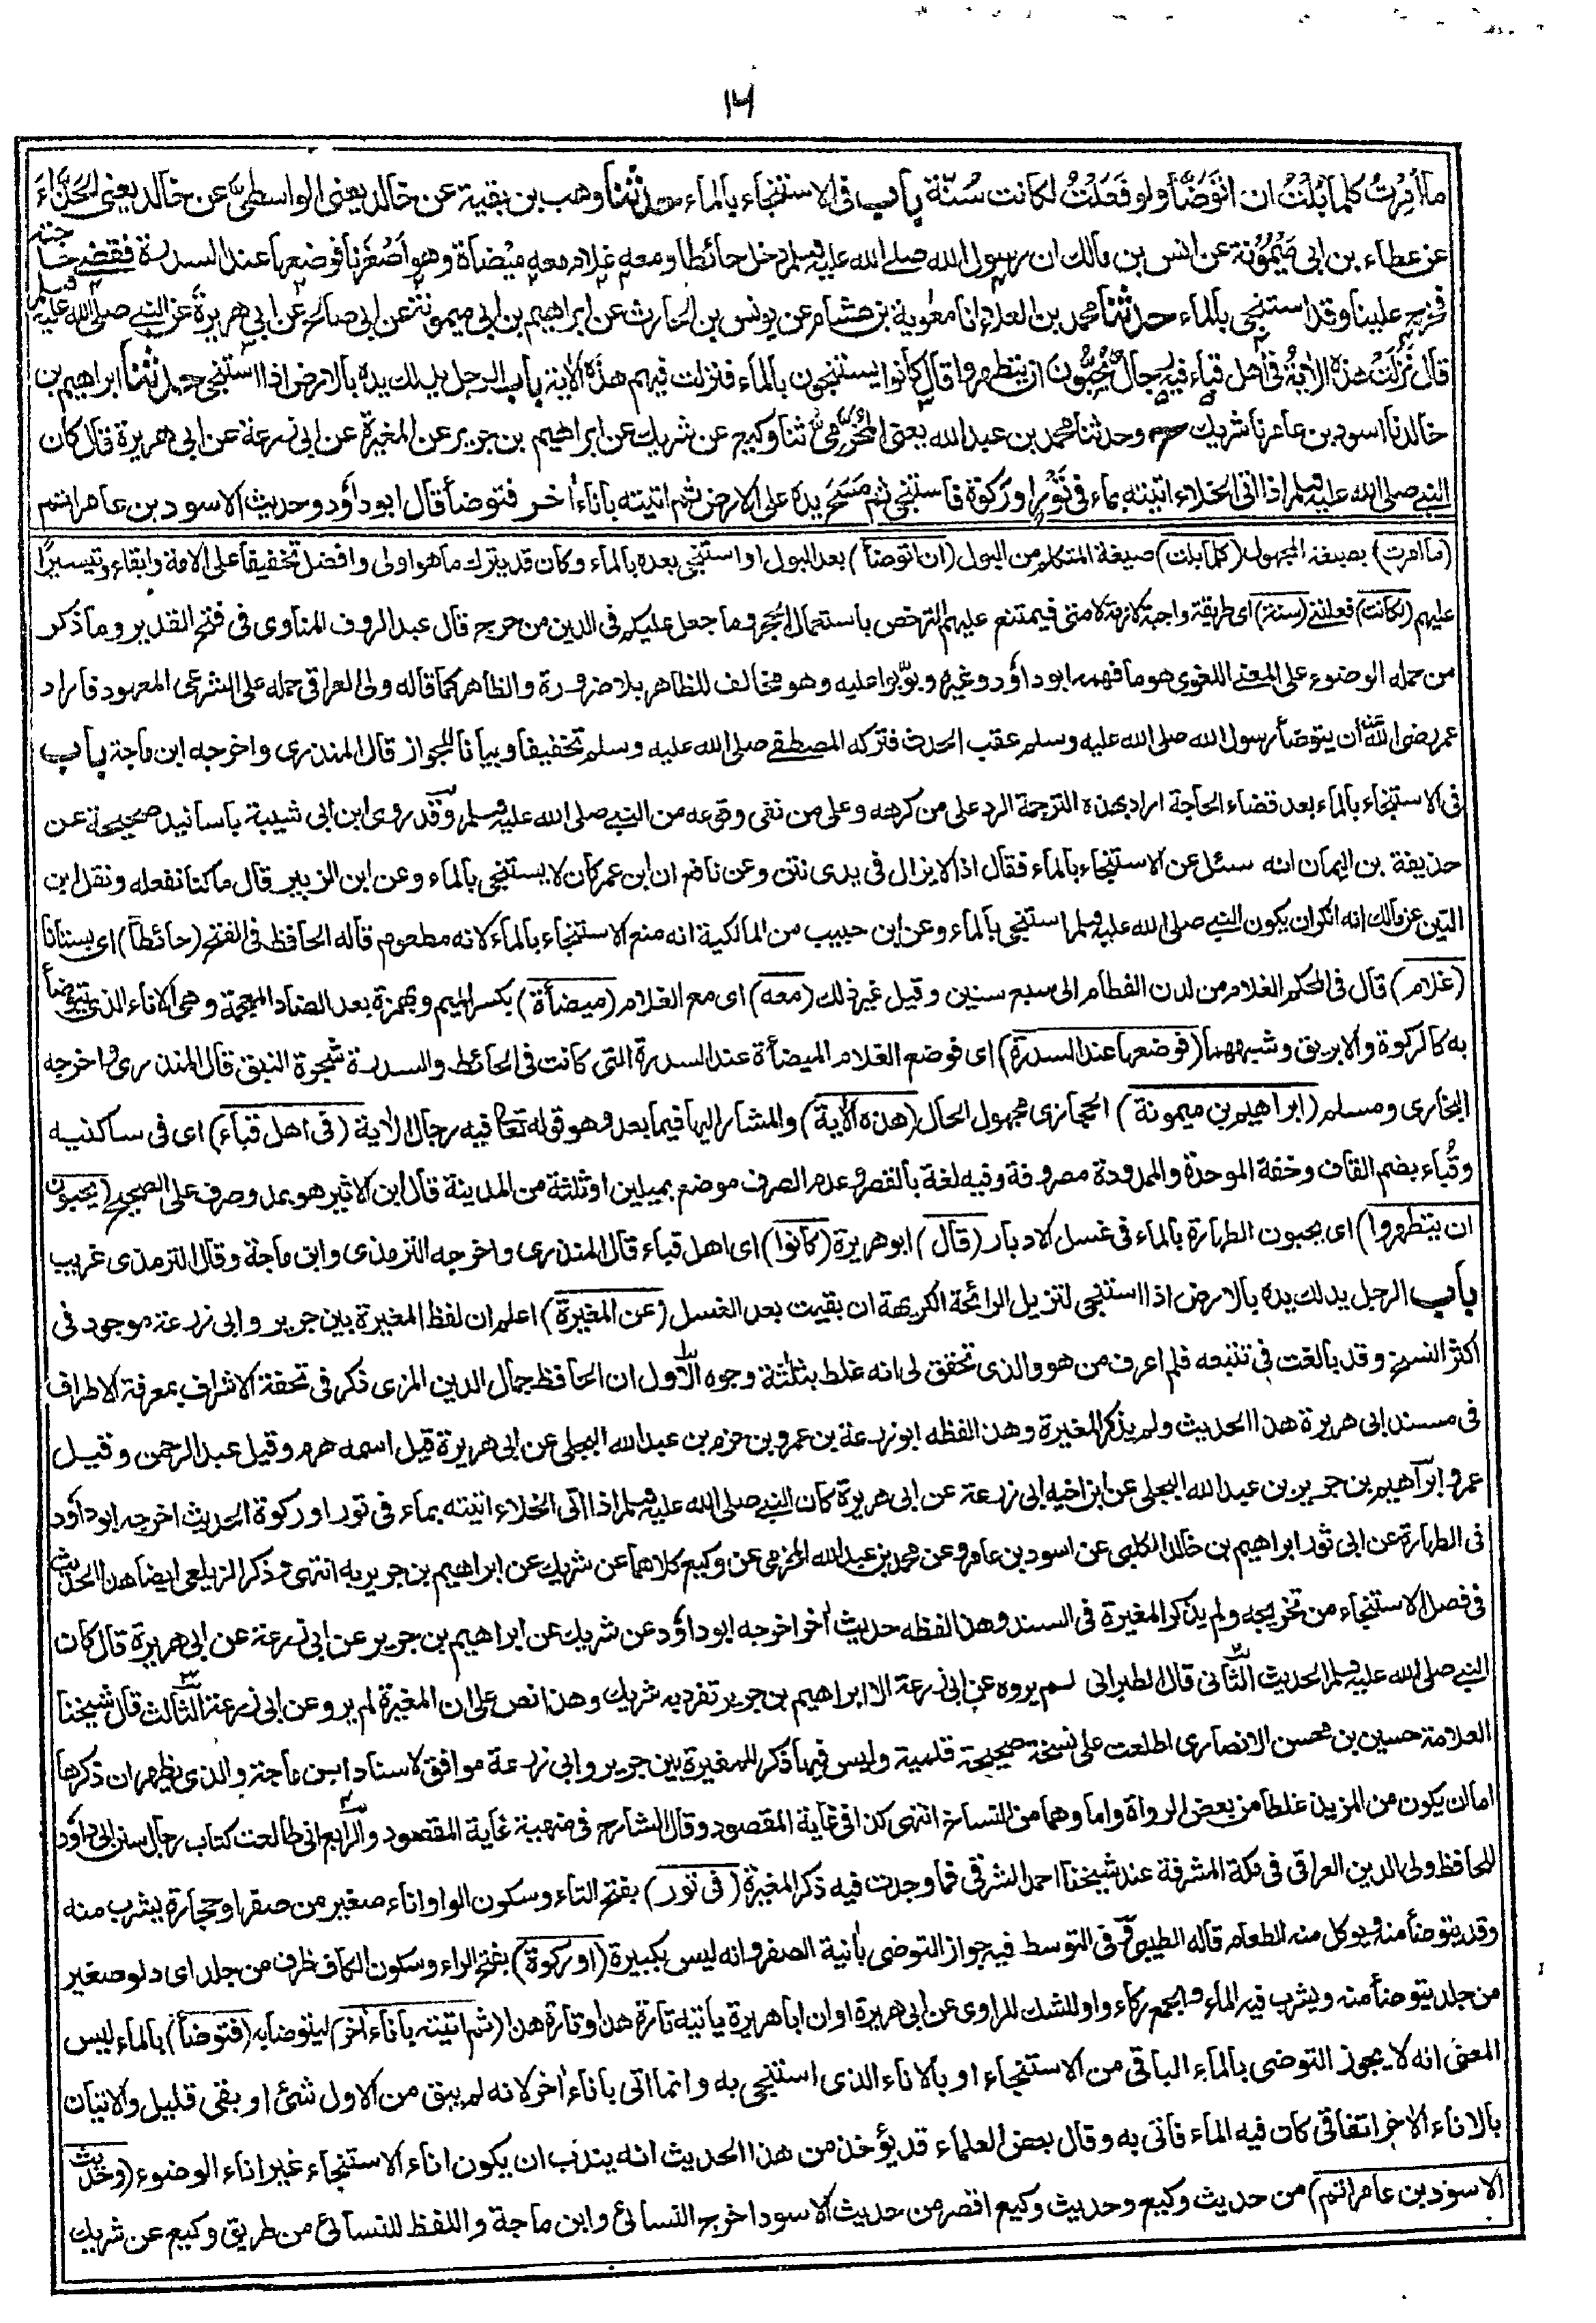 ١٦
ما أُمِرْتُ كلما بُلْتُ ان اتوَضَّأ ولو فَعَلْتُ لكانت سُنّة باب فى الاستنجاء بالماء حدثنا وهب بن بقية عن خالد يعنى الواسطىَّ عن خالد يعنى الحَذَّاءَ
عن عطاء بن ابى مَيْمُوْنة عن انس بن مالك ان رسول الله صلى الله عليه وسلم دخل حائطا ومعه غلام معه مِيْضأة وهو اَصْغَرُنا فوضعها عند السدرة فقضى حاجته
فخرج علينا وقد استنجى بالماء حدثنا محمد بن العلاء انا معٰوية بن هشام عن يونس بن الحارث عن ابراهيم بن ابى ميمونة عن ابى صالح عن ابى هريرة عن النبى صلى الله عليه وسلم
قال نَزَلَتْ هذه الاٰيةُ فى اهل قباء فيه رجال يُّحِبُّونَ ان يتطهروا قال كانوا يستنجون بالماء فنزلت فيهم هذه الاٰية باب الرجل يدلك يده بالارض اذا استنجى حدثنا ابراهيم بن
خالد نا اسود بن عامر نا شريك ح وحدثنا محمد بن عبد الله يعنى المُخَرَّمِىَّ ثنا وكيع عن شريك عن ابراهيم بن جرير عن المغيرة عن ابى زرعة عن ابى هريرة قال كان
النبى صلى الله عليه وسلم اذا اتى الخلاء اتيته بماء فى تَوْرٍ او رَكْوَة فاستنجى ثم مَسَحَ يده على الارض ثم اتيته باناء اٰخر فتوضأ قال ابو داؤد وحديث الاسود بن عامر اتم
(ما امرت) بصيغة المجهول (كلما بلت) صيغة المتكلم من البول (ان اتوضأ) بعد البول او استنجى بعده بالماء وكان قد يترك ما هو اولى وافضل تخفيفا على الامة وابقاء وتيسيرًا
عليهم (لكانت) فعلتى (سنة) اى طريقة واجبة لازمة لامتى فيمتنع عليهم الترخص باستعمال الحجر وما جعل عليكم فى الدين من حرج قال عبد الروف المناوى فى فتح القدير وما ذكر
من حمله الوضوء على المعنى اللغوى هو ما فهمه ابو داؤد وغيره وبوّبوا عليه وهو مخالف للظاهر بلا ضرورة والظاهر كما قاله ولى العراقى حمله على الشرعى المعهود فاراد
عمر رضى الله عنه أن يتوضأ رسول الله صلى الله عليه وسلم عقب الحدث فتركه المصطفى صلى الله عليه وسلم تخفيفا وبيانا للجواز قال المنذرى واخرجه ابن ماجة باب
فى الاستنجاء بالماء بعد قضاء الحاجة اراد بهذه الترجمة الرد على من كرهه وعلى من نفى وقوعه من النبى صلى الله عليه وسلم وقد روى ابن ابى شيبة باسانيد صحيحة عن
حذيفة بن اليمان انه سئل عن الاستنجاء بالماء فقال اذا لا يزال فى يدى نتن وعن نافع ان ابن عمر كان لا يستنجى بالماء وعن ابن الزبير قال ما كنا نفعله ونقل ابن
التين عن مالك انه انكر ان يكون النبى صلى الله عليه وسلم استنجى بالماء وعن ابن حبيب من المالكية انه منع الاستنجاء بالماء لانه مطعوم قاله الحافظ فى الفتح (حائطا) اى بستانا
(غلام) قال فى المحكم الغلام من لدن الفطام الى سبع سنين وقيل غير ذلك (معه) اى مع الغلام (ميضأة) بكسر الميم وبهمزة بعد الضاد المعجمة وهى الاناء الذى يتوضأ
به كالركوة والابريق وشبههما (فوضعها عند السدرة) اى فوضع الغلام الميضأة عند السدرة التى كانت فى الحائط والسدرة شجرة النبق قال المنذرى واخرجه
البخارى ومسلم (ابراهيم بن ميمونة) الحجازى مجهول الحال (هذه الاٰية) والمشار اليها فيما بعد وهو قوله تعالى فيه رجال الاٰية (فى اهل قباء) اى فى ساكنيه
وقُباء بضم القاف وخفة الموحدة والممدودة مصروفة وفيه لغة بالقصر وعدم الصرف موضع بميلين او ثلثة من المدينة قال ابن الاثير هو بمد وصرف على الصحيح (يحبون
ان يتطهروا) اى يحبون الطهارة بالماء فى غسل الادبار (قال) ابو هريرة (كانوا) اى اهل قباء قال المنذرى واخرجه الترمذى وابن ماجة وقال الترمذى غريب
باب الرجل يدلك يده بالارض اذا استنجى لتزيل الرائحة الكريهة ان بقيت بعد الغسل (عن المغيرة) اعلم ان لفظ المغيرة بين جرير وابى زرعة موجود فى
اكثر النسخ وقد بالغت فى تتبعه فلم اعرف من هو والذى تحقق لى انه غلط بثلثة وجوه الاول ان الحافظ جمال الدين المزى ذكر فى تحفة الاشراف بمعرفة الاطراف
فى مسند ابى هريرة هذا الحديث ولم يذكر المغيرة وهذا لفظه ابو زرعة بن عمرو بن حزم بن عبد الله البجلى عن ابى هريرة قيل اسمه هرم وقيل عبد الرحمن وقيل
عمرو ابراهيم بن جرير بن عبد الله البجلى عن ابن اخيه ابى زرعة عن ابى هريرة كان النبى صلى الله عليه وسلم اذا اتى الخلاء اتيته بماء فى تور او ركوة الحديث اخرجه ابو داؤد
فى الطهارة عن ابى ثور ابراهيم بن خالد الكلبى عن اسود بن عامر وعن محمد بن عبد الله المخرمى عن وكيع كلاهما عن شريك عن ابراهيم بن جرير به انتهى وذكر الزيلعى ايضا هذا الحديث
فى فصل الاستنجاء من تخريجه ولم يذكر المغيرة فى السند وهذا لفظه حديث اٰخر اخرجه ابو داؤد عن شريك عن ابراهيم بن جرير عن ابى زرعة عن ابى هريرة قال كان
النبى صلى الله عليه وسلم الحديث الثانى قال الطبرانى لم يروه عن ابى زرعة الا ابراهيم بن جرير تفرد به شريك وهذا نص على ان المغيرة لم يرو عن ابى زرعة الثالث قال شيخنا
العلامة حسين بن محسن الانصارى اطلعت على نسخة صحيحة قلمية وليس فيها ذكر للمغيرة بين جرير وابى زرعة موافق لاسناد ابن ماجة والذى يظهر ان ذكرها
اما ان يكون من المزيد غلطا من بعض الرواة واما وهما من النساخ انتهى كذا فى غاية المقصود وقال الشارح فى منهية غاية المقصود والرابع انى طالعت كتاب رجال سنن ابى داؤد
للحافظ ولى الدين العراقى فى مكة المشرفة عند شيخنا احمد الشرقى فما وجدت فيه ذكر المغيرة (فى تور) بفتح التاء وسكون الواو اناء صغير من صفر او حجارة يشرب منه
وقد يتوضأ منه ويوكل منه الطعام قاله الطيبى وفى التوسط فيه جواز التوضى بانية الصفر وانه ليس بكبيرة (او ركوة) بفتح الراء وسكون الكاف ظرف من جلد اى دلو صغير
من جلد يتوضأ منه ويشرب فيه الماء والجمع ركاء واو للشك للراوى عن ابى هريرة او ان ابا هريرة ياتيه تارة هذا وتارة هذا (ثم اتيته باناء اٰخر) ليتوضأ به (فتوضأ) بالماء ليس
المعنى انه لا يجوز التوضى بالماء الباقى من الاستنجاء او بالاناء الذى استنجى به وانما اتى باناء اٰخر لانه لم يبق من الاول شئ او بقى قليل والاتيان
بالاناء الاٰخر اتفاقى كان فيه الماء فاتى به وقال بعض العلماء قد يؤخذ من هذا الحديث انه يندب ان يكون اناء الاستنجاء غير اناء الوضوء (وحديث
الاسود بن عامر اتم) من حديث وكيع وحديث وكيع اقصر من حديث الاسود اخرجه النسائى وابن ماجة واللفظ للنسائى من طريق وكيع عن شريك